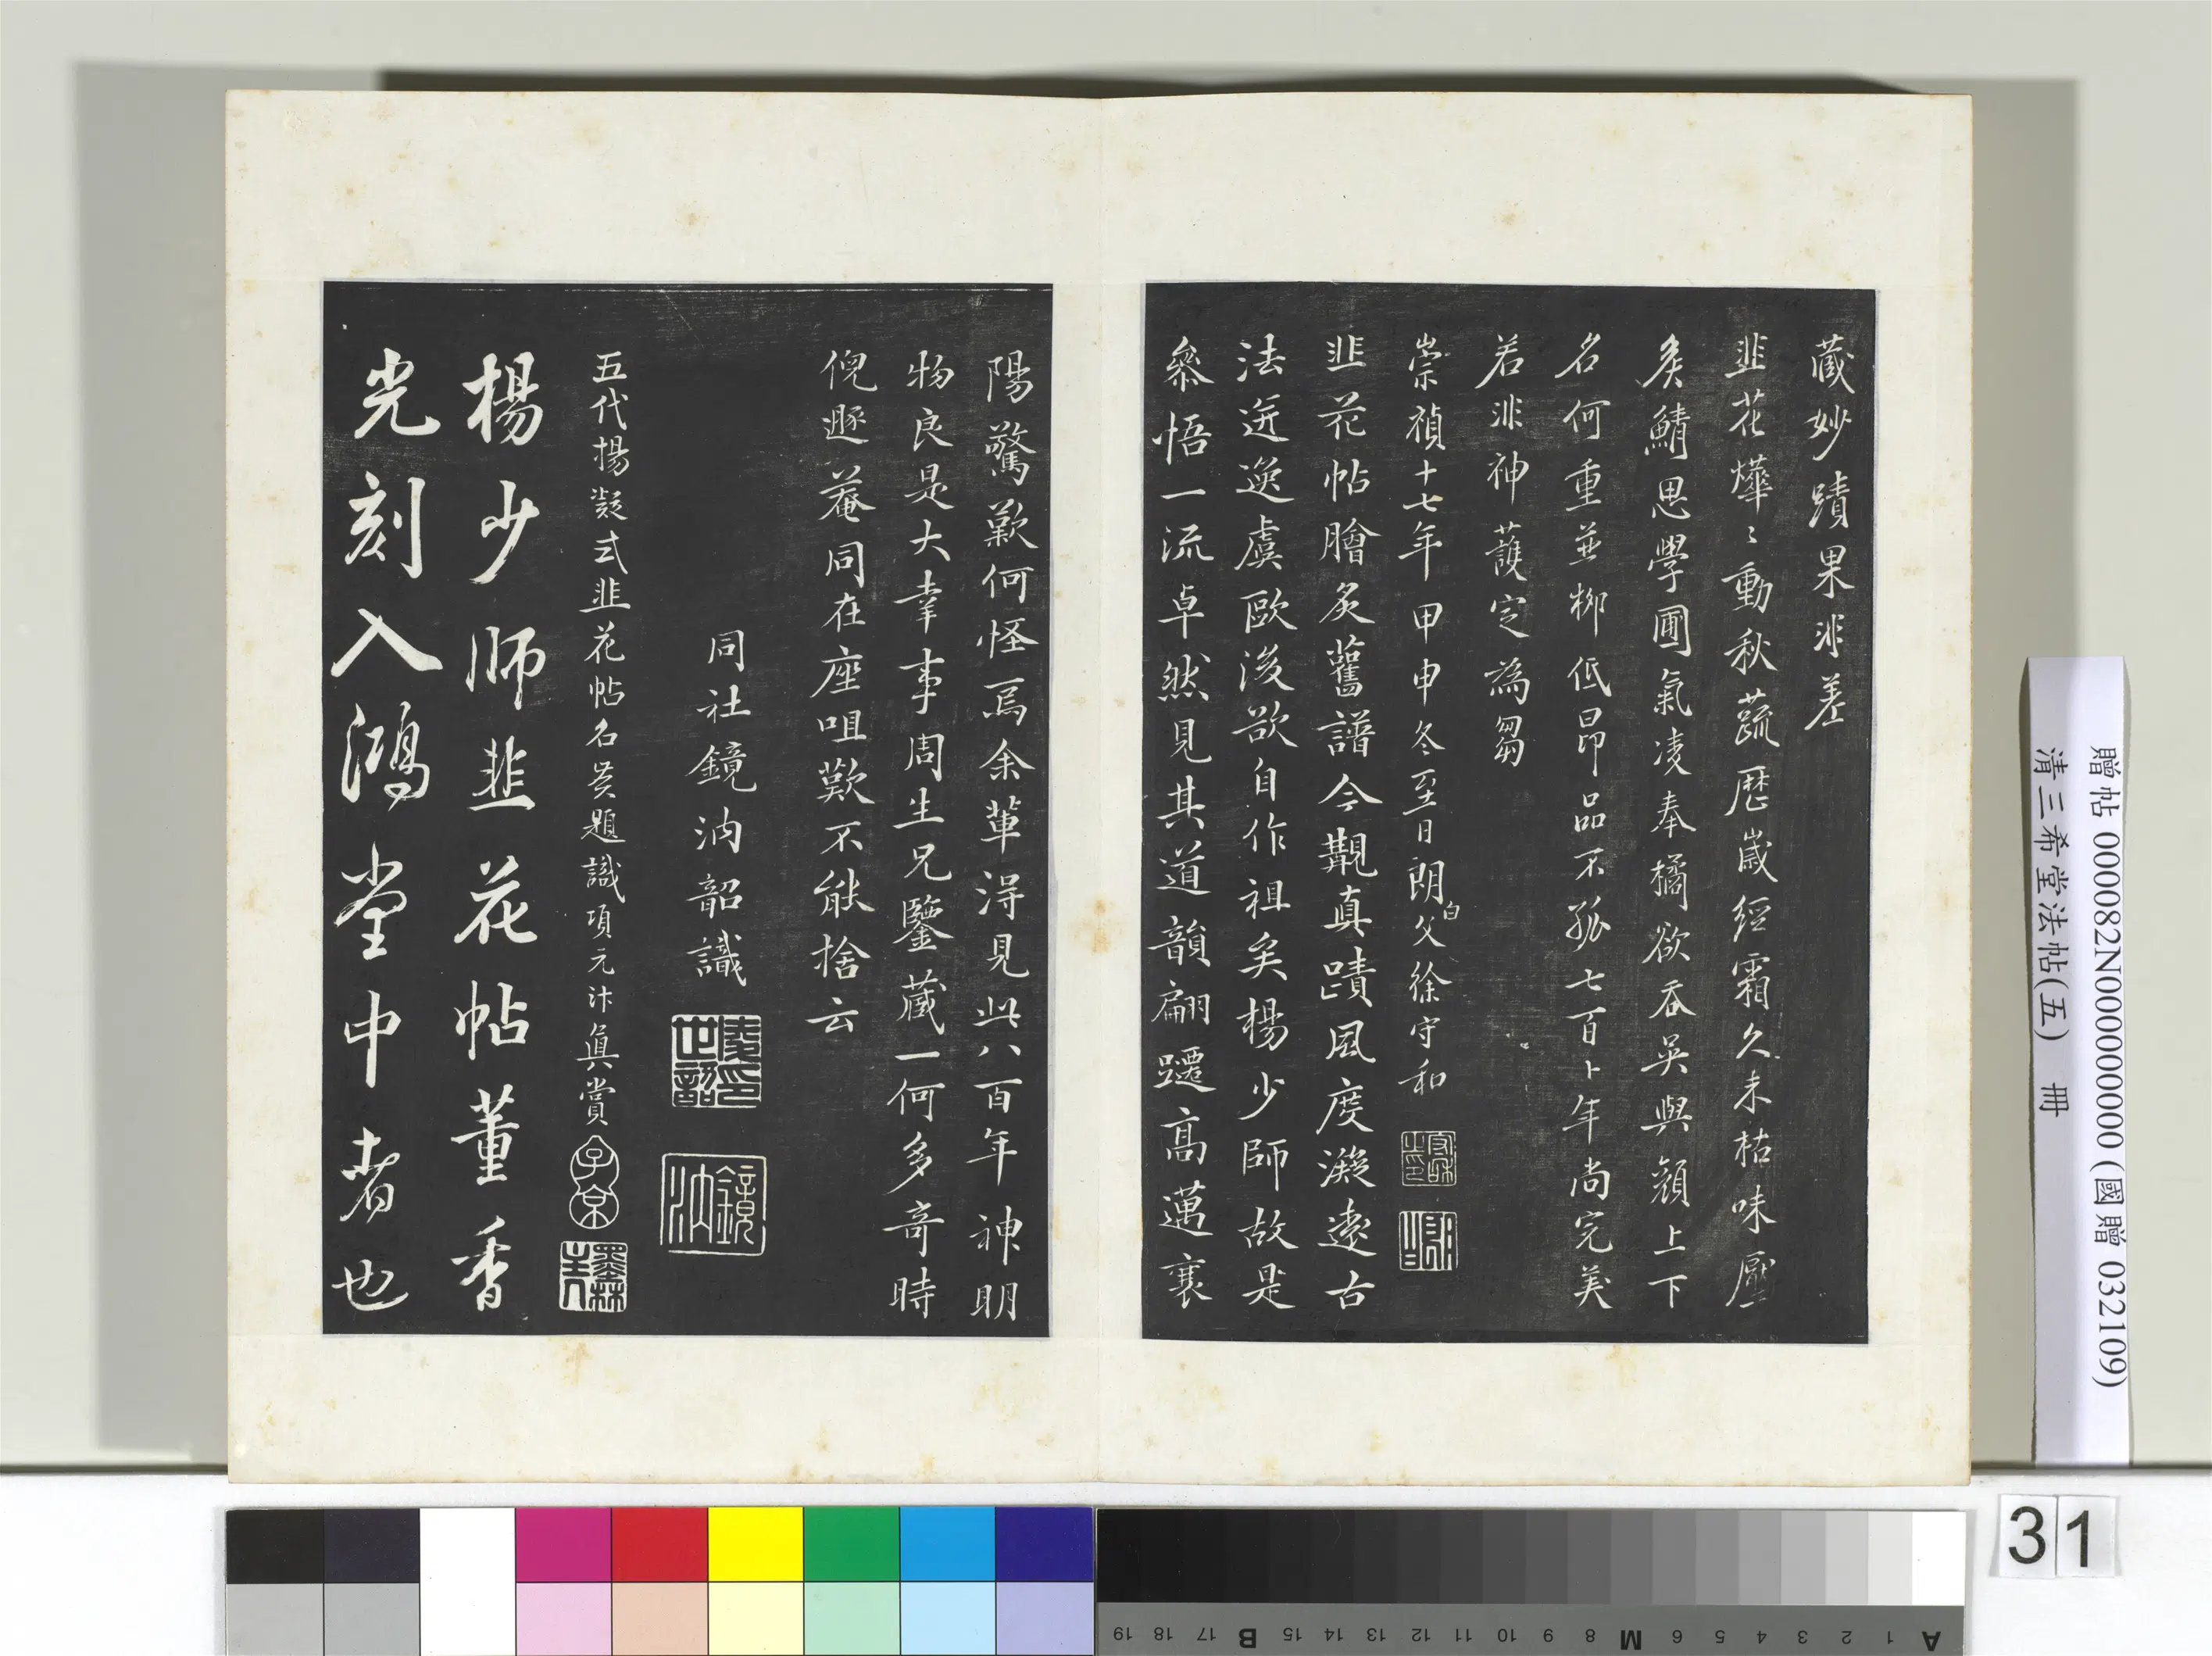 藏妙蹟果非差
韭花燁〻動秋蔬歷歲經霜久未枯味壓
矦鯖思學圃氣凌奉橘欲吞吳與顏上下
名何重並柳低昂品不孤七百卜年尚完美
若非神護定為芻
崇禎十七年甲申冬至日朗白父徐守和
韭花帖膾炙舊譜今觀真蹟風度凝遠古
法迸逸虞歐後欲自作祖矣楊少師故是
叅悟一流卓然見其道韻翩躚高邁襄
陽驚歎何怪焉余輩得見此八百年神明
物良是大幸事周生兄鑒藏一何多奇時
倪遯菴同在座咀歎不能捨云
同社鏡汭韶識
鏡汭
五代楊凝式韭花帖名賢題識項元汴真賞
子京
墨林
楊少師韭花帖董香
光刻入鴻堂中者也
贈帖 000082N000000000 (國贈 032109)
清三希堂法帖(五) 冊
31
A 1 2 3 4 5 6 M 8 9 10 11 12 13 14 15 B 17 18 19